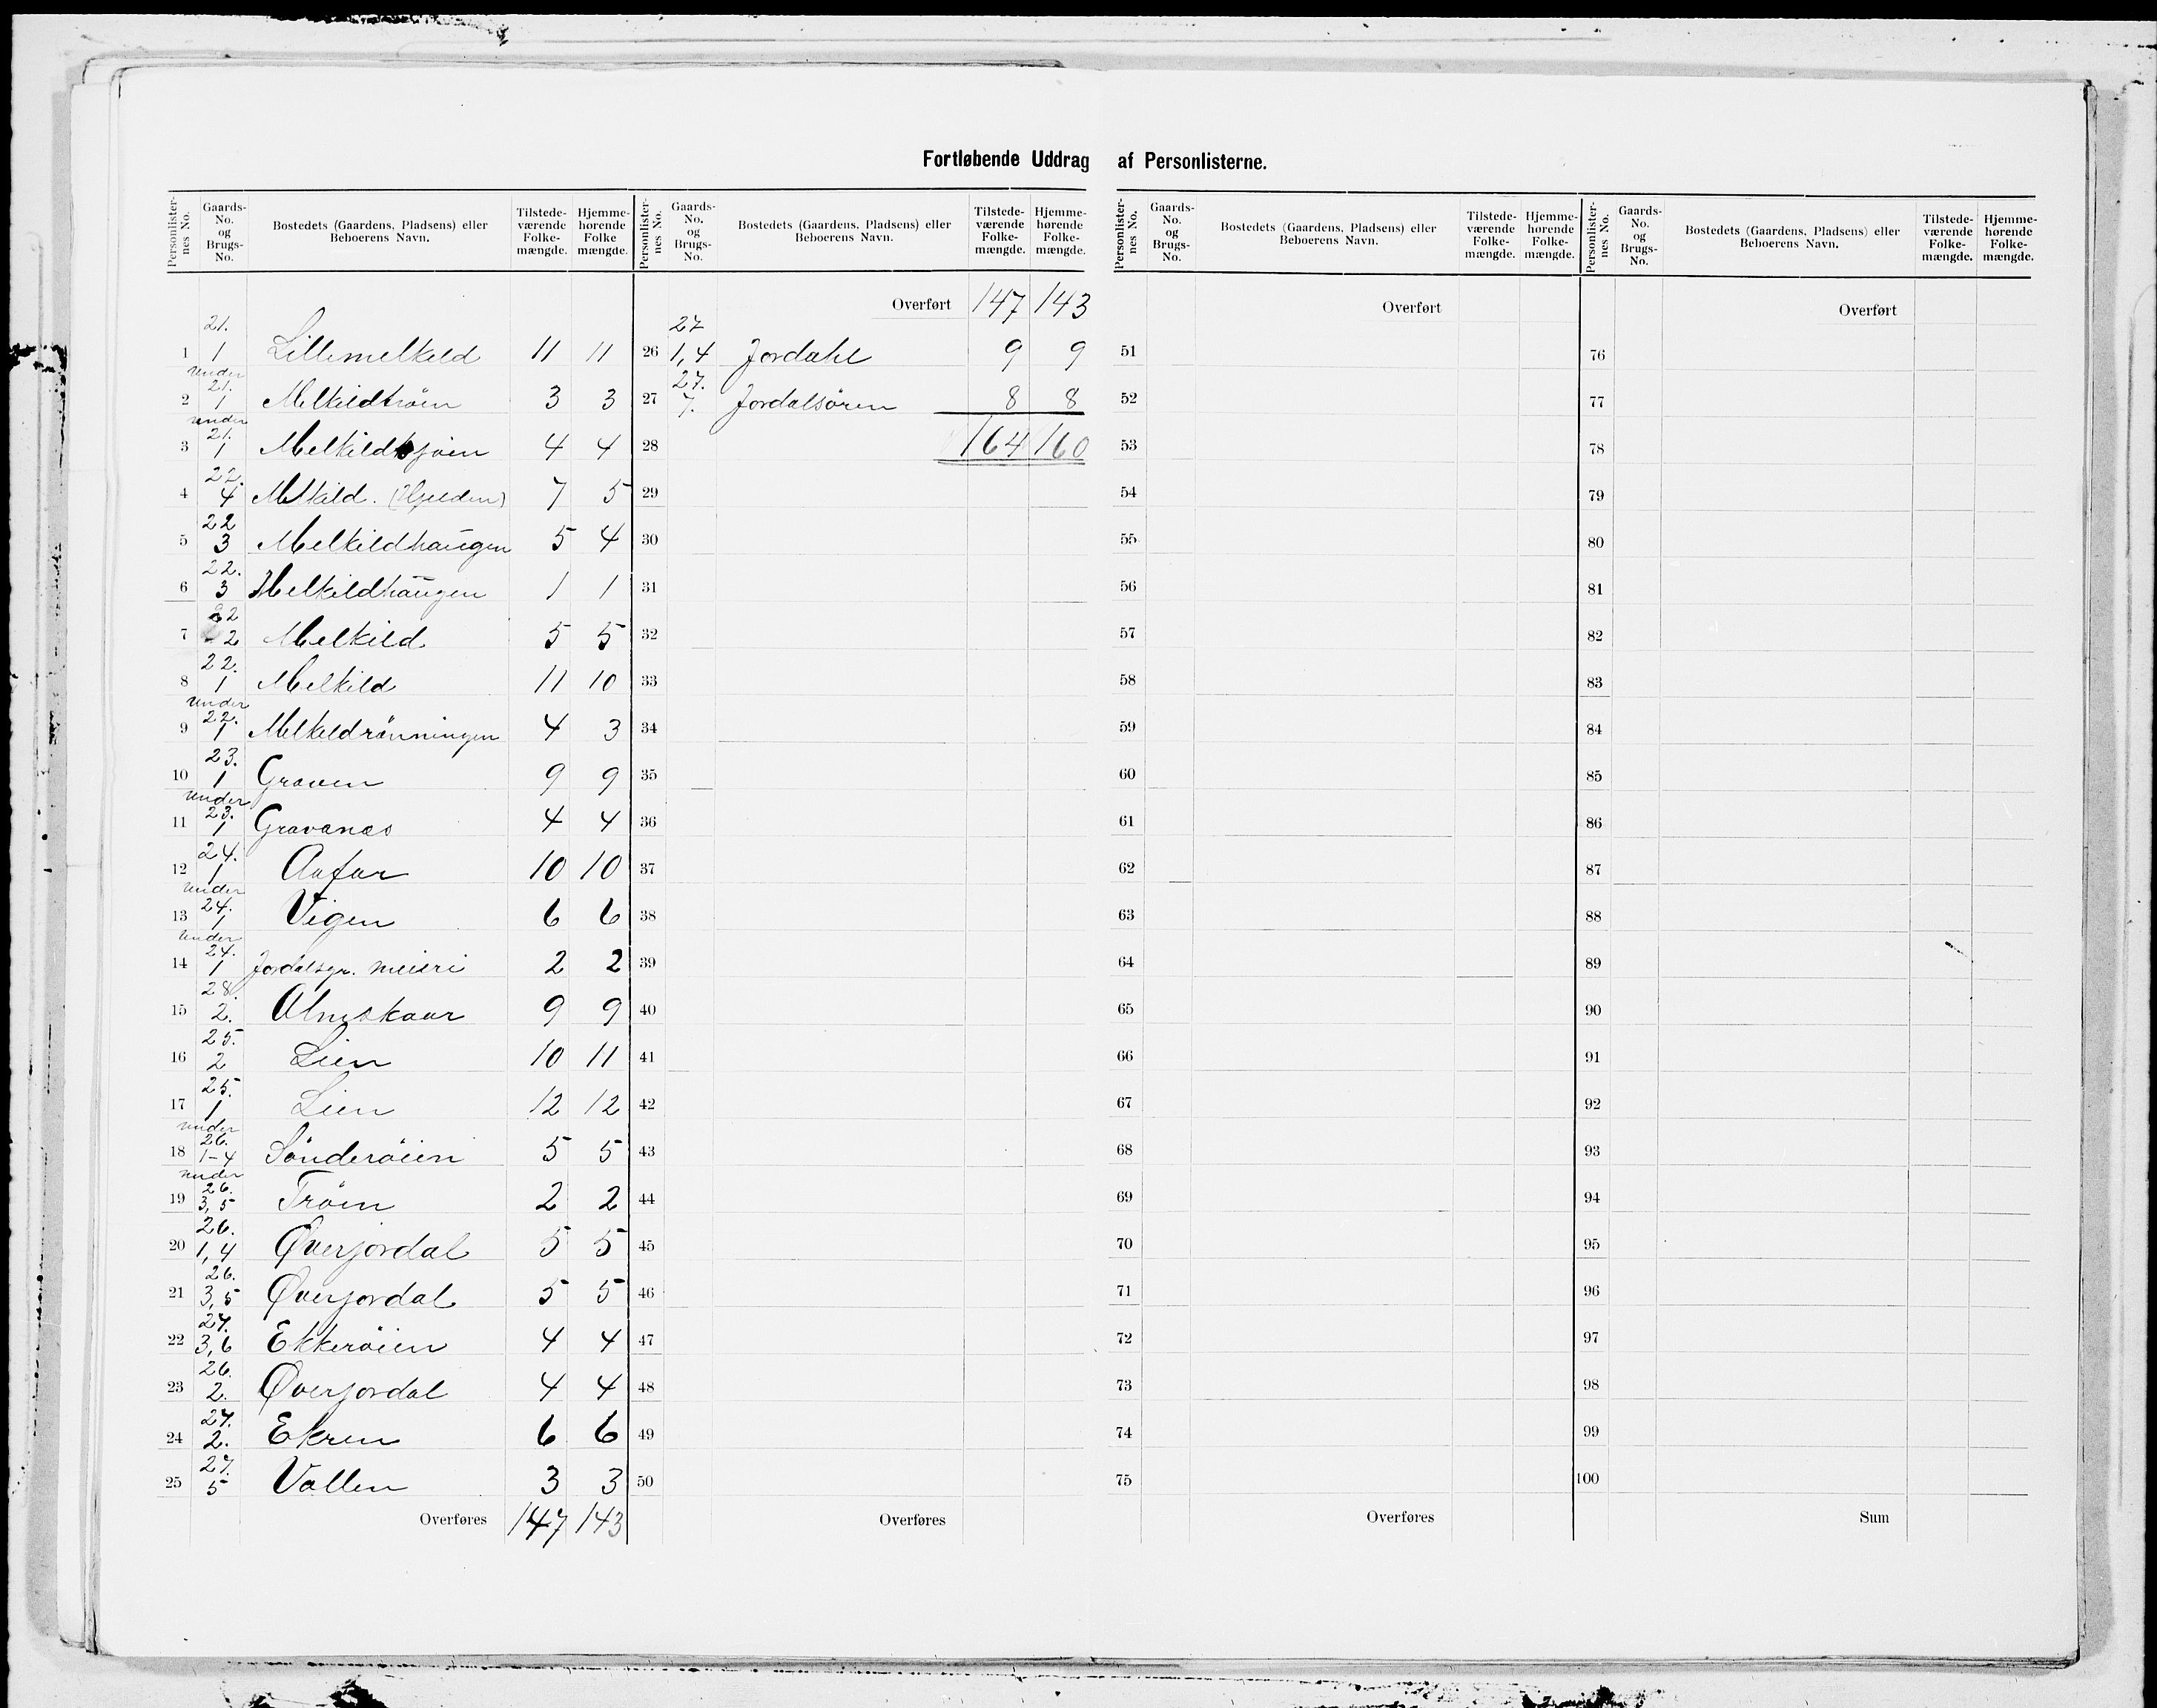 Fortløbende Uddrag af Personlisterne.
Personlisternes No. | Gaards-No. og Brugs-No. | Bostedets (Gaardens, Pladsens) eller Beboerens Navn. | Tilstedeværende Folkemængde. | Hjemmehørende Folkemængde.
1 | 21. 1 | Lillemelkild | 11 | 11
2 | under 21. 1 | Melkildtrøen | 3 | 3
3 | under 21. 1 | 4 | 4
4 | 22. 4 | Melkild. | 7 | 5
5 | 22 3 | Melkildhaugen | 5 | 4
6 | 22. 3 | Melkildhaugen | 1 | 1
7 | 22 2 | Melkild | 5 | 5
8 | 22. 1 | Melkild | 11 | 10
9 | under 22. 1 | Melkildrønningen | 4 | 3
10 | 23. 1 | Graven | 9 | 9
11 | under 23. 1 | Gravanæs | 4 | 4
12 | 24. 1 | Aafar | 10 | 10
13 | under 24. 1 | Vigen | 6 | 6
14 | under 24. 1 | Jordalsgr. meieri | 2 | 2
15 | 28. 2. | Almskaar | 9 | 9
16 | 25. 2 | Lien | 10 | 11
17 | 25. 1 | Lien | 12 | 12
18 | under 26. 1-4 | Sönderöien | 5 | 5
19 | under 26. 3,5 | Tröen | 2 | 2
20 | 26. 1,4 | Øverjordal | 5 | 5
21 | 26. 3,5 | Øverjordal | 5 | 5
22 | 27. 3,6 | Ekkeröien | 4 | 4
23 | 26. 2. | Øverjordal | 4 | 4
24 | 27. 2. | Ekren | 6 | 6
25 | 27. 5 | Vollen | 3 | 3
Overføres | 147 | 143
Personlisternes No. | Gaards-No. og Brugs-No. | Bostedets (Gaardens, Pladsens) eller Beboerens Navn. | Tilstedeværende Folkemængde. | Hjemmehørende Folkemængde.
Overført | 147 | 143
26 | 27 1,4 | Jordahl | 9 | 9
27 | 27. 7. | Jordalsören | 8 | 8
28 | 164 | 160
29
30
31
32
33
34
35
36
37
38
39
40
41
42
43
44
45
46
47
48
49
50
Overføres
Personlisternes No. | Gaards-No. og Brugs-No. | Bostedets (Gaardens, Pladsens) eller Beboerens Navn. | Tilstedeværende Folkemængde. | Hjemmehørende Folkemængde.
Overført
51
52
53
54
55
56
57
58
59
60
61
62
63
64
65
66
67
68
69
70
71
72
73
74
75
Overføres
Personlisternes No. | Gaards-No. og Brugs-No. | Bostedets (Gaardens, Pladsens) eller Beboerens Navn. | Tilstedeværende Folkemængde. | Hjemmehørende Folkemængde.
Overført
76
77
78
79
80
81
82
83
84
85
86
87
88
89
90
91
92
93
94
95
96
97
98
99
100
Sum